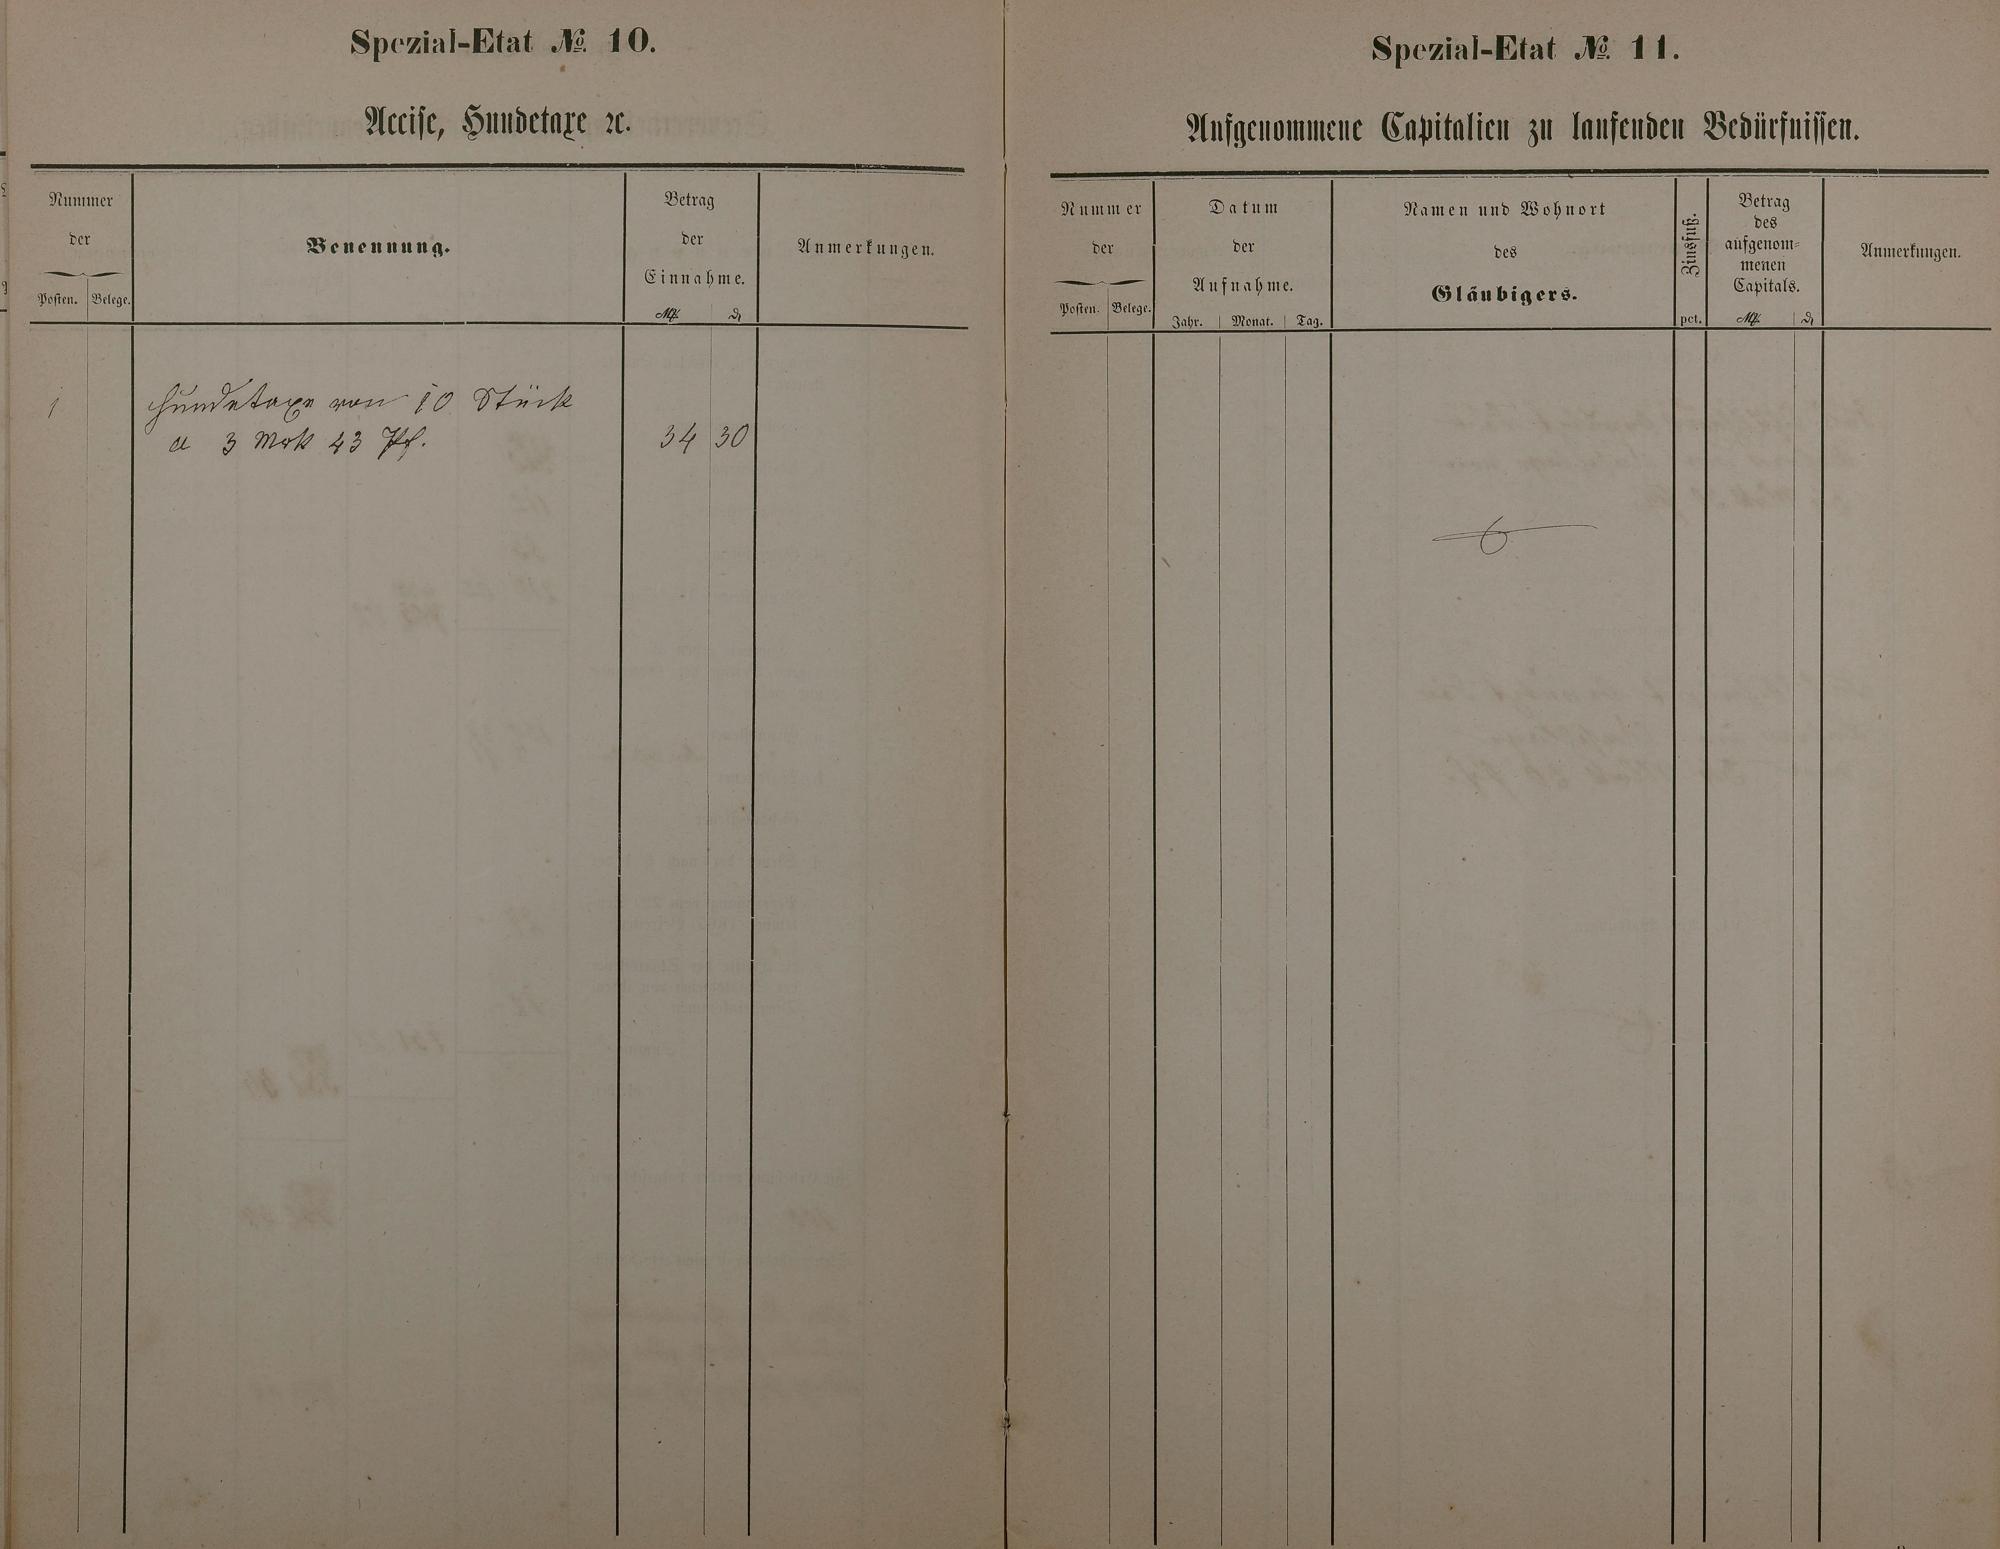 Spezial-Etat № 10.
Accise, Hundetaxe ꝛc.
Nummer
der
Posten. Belege.
Benennung.
Betrag
der
Einnahme.
Mk ₰
Anmerkungen.
1 Hundetaxe von 10 Stück
a 3 Mrk 43 Pf. 34 30
Spezial-Etat № 11.
Aufgenommene Capitalien zu laufenden Bedürfnissen.
Nummer
der
Posten. Belege.
Datum
der
Aufnahme.
Jahr. Monat. Tag.
Namen und Wohnort
des
Gläubigers.
Zinsfuß.
pct.
Betrag
des
aufgenom=
menen
Capitals.
Mk ₰
Anmerkungen.